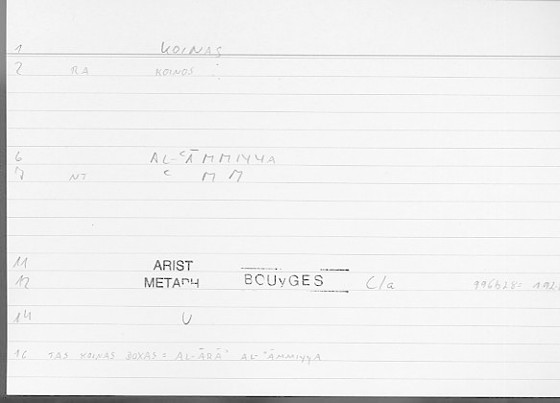 1 KOINAS
2 RA KOINOS
6 AL-ʿĀMMIYYA
7 NT ʿ M M
11 ARIST
12 METAPH BOUyGES C/a 996b28=
14 U
16 TAS KOINAS DOXAS = AL-ĀRĀʾ AL-ʿĀMMIYYA